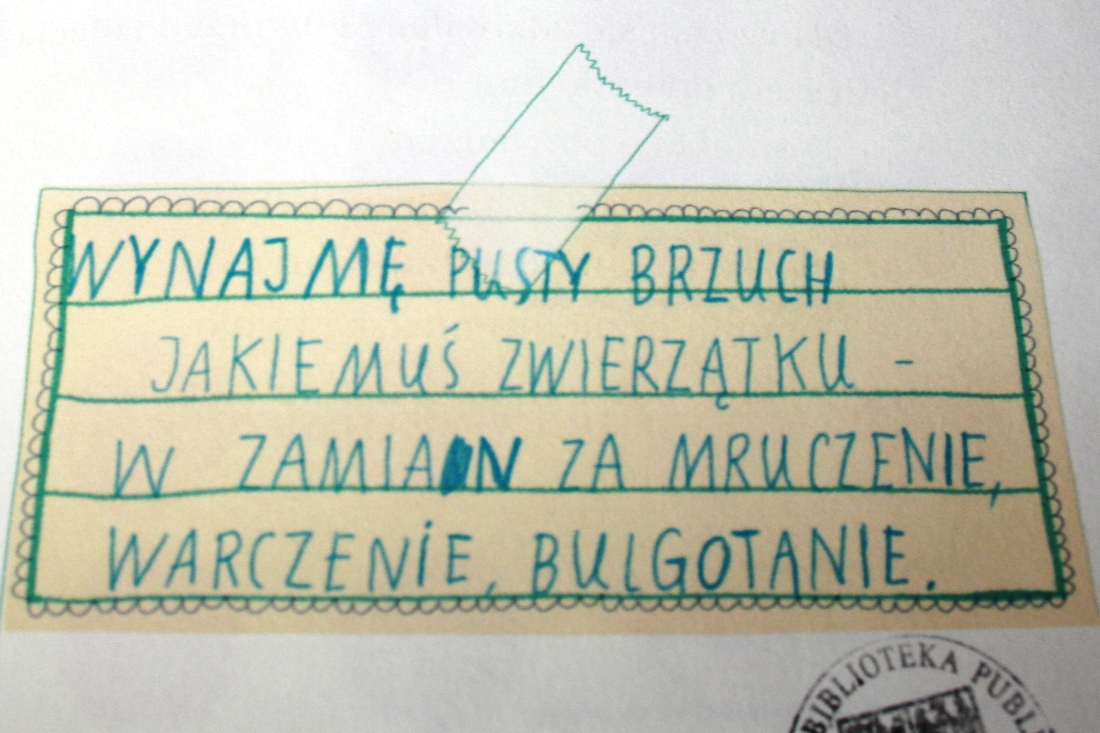 WYNAJMĘ PUSTY BRZUCH
JAKIEMUŚ ZWIERZĄTKU -
W ZAMIAN ZA MRUCZENIE,
WARCZENIE, BULGOTANIE.
BIBLIOTEKA